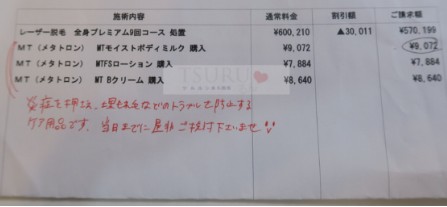 施術内容 通常料金 割引額 ご請求額
レーザー脱毛 全身プレミアム9回コース 処置 ¥600,210 ▲30,011 ¥570,199
MT(メタトロン) MTモイストボディミルク 購入 ¥9,072 ¥9,072
MT(メタトロン) MTFSローション 購入 ¥7,884 ¥7,884
MT(メタトロン) MT Bクリーム 購入 ¥8,640 ¥8,640
TSURU
炎症を抑え、埋もれ毛などのトラブルを防止する
ケア用品です。当日までに是非ご検討下さいませ